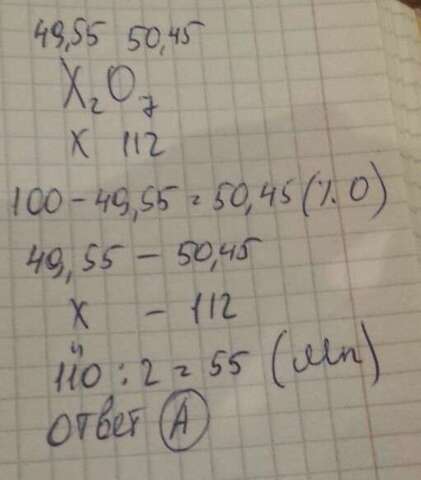 49,55 50,45
X₂O₇
x 112
100 - 49,55 = 50,45 (% O)
49,55 - 50,45
x - 112
"
110 : 2 = 55 (Mn)
ответ А